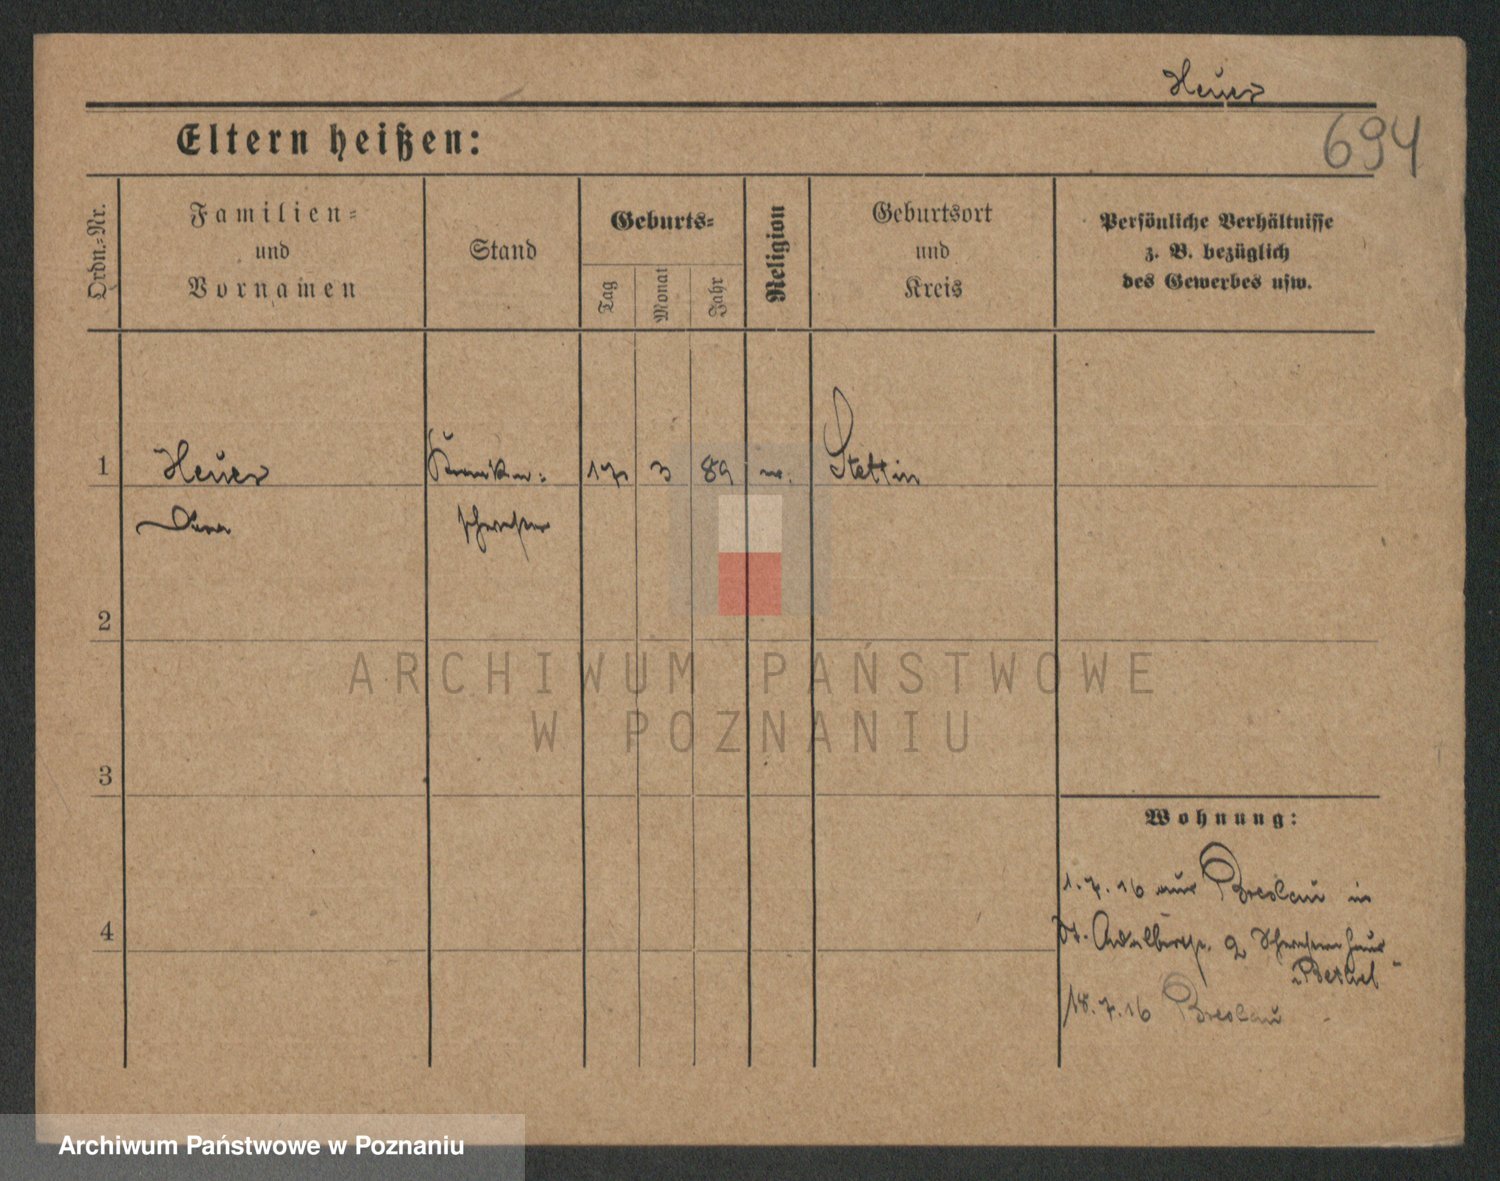 Heuer
694
Eltern heißen:
Ordn.=Nr.
Familien=
und
Vornamen
Stand
Geburts=
Tag
Monat
Jahr
Religion
Geburtsort
und
Kreis
Persönliche Verhältnisse
z. B. bezüglich
des Gewerbes usw.
1
Heuer
Kranken=
17
3
89
Stettin
schwester
2
3
4
Wohnung:
1.7.16 aus Breslau in
St. Adalbertstr. 9 Schwesternhaus
"Bethel"
18.7.16 Breslau
ARCHIWUM PAŃSTWOWE
W POZNANIU
Archiwum Państwowe w Poznaniu